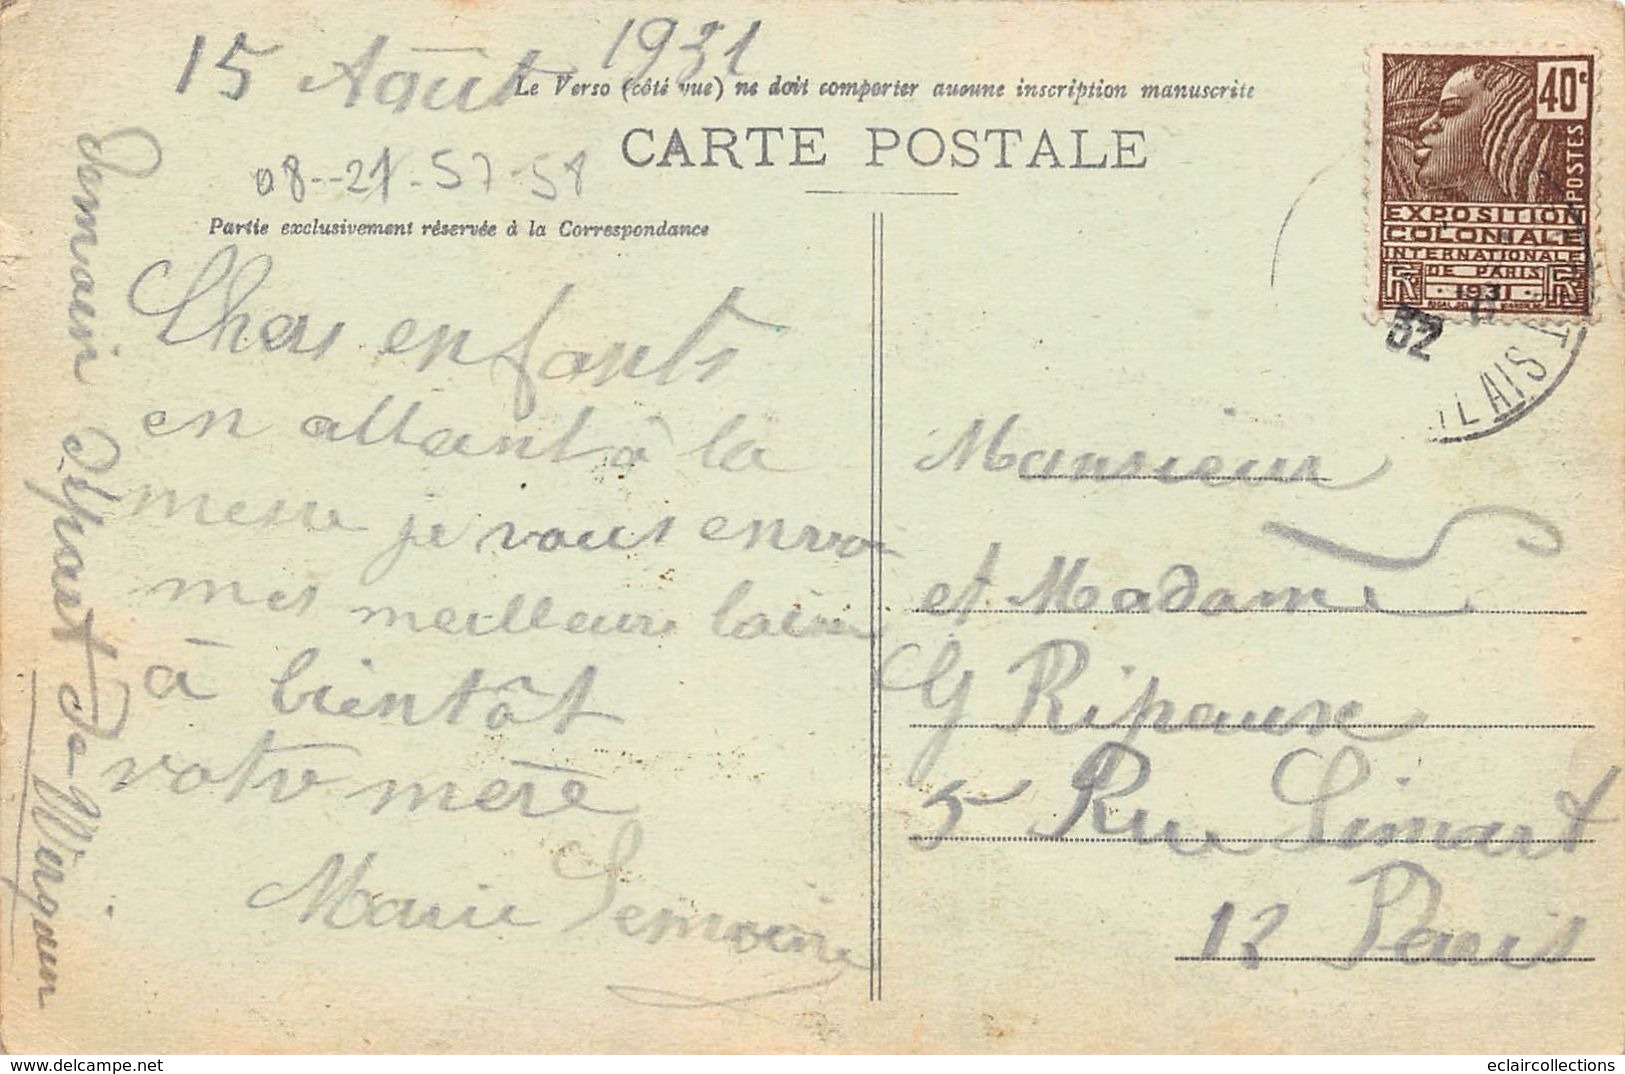 15 Août 1931
Le Verso (côté vue) ne doit comporter aucune inscription manuscrite
CARTE POSTALE
08--21-57-58
Partie exclusivement réservée à la Correspondance
Chers enfants
en attant à la
messe je vous envoi
mes meilleurs
à bientôt
votre mère
Marie Lemoine
demain départ de Wirquin
40c
POSTES
EXPOSITION
COLONIALE
INTERNATIONALE
DE PARIS
1931
RF RF
32
Monsieur
et Madame
G Ripaux
5 Rue Simart
12 Paris
eclaircollections